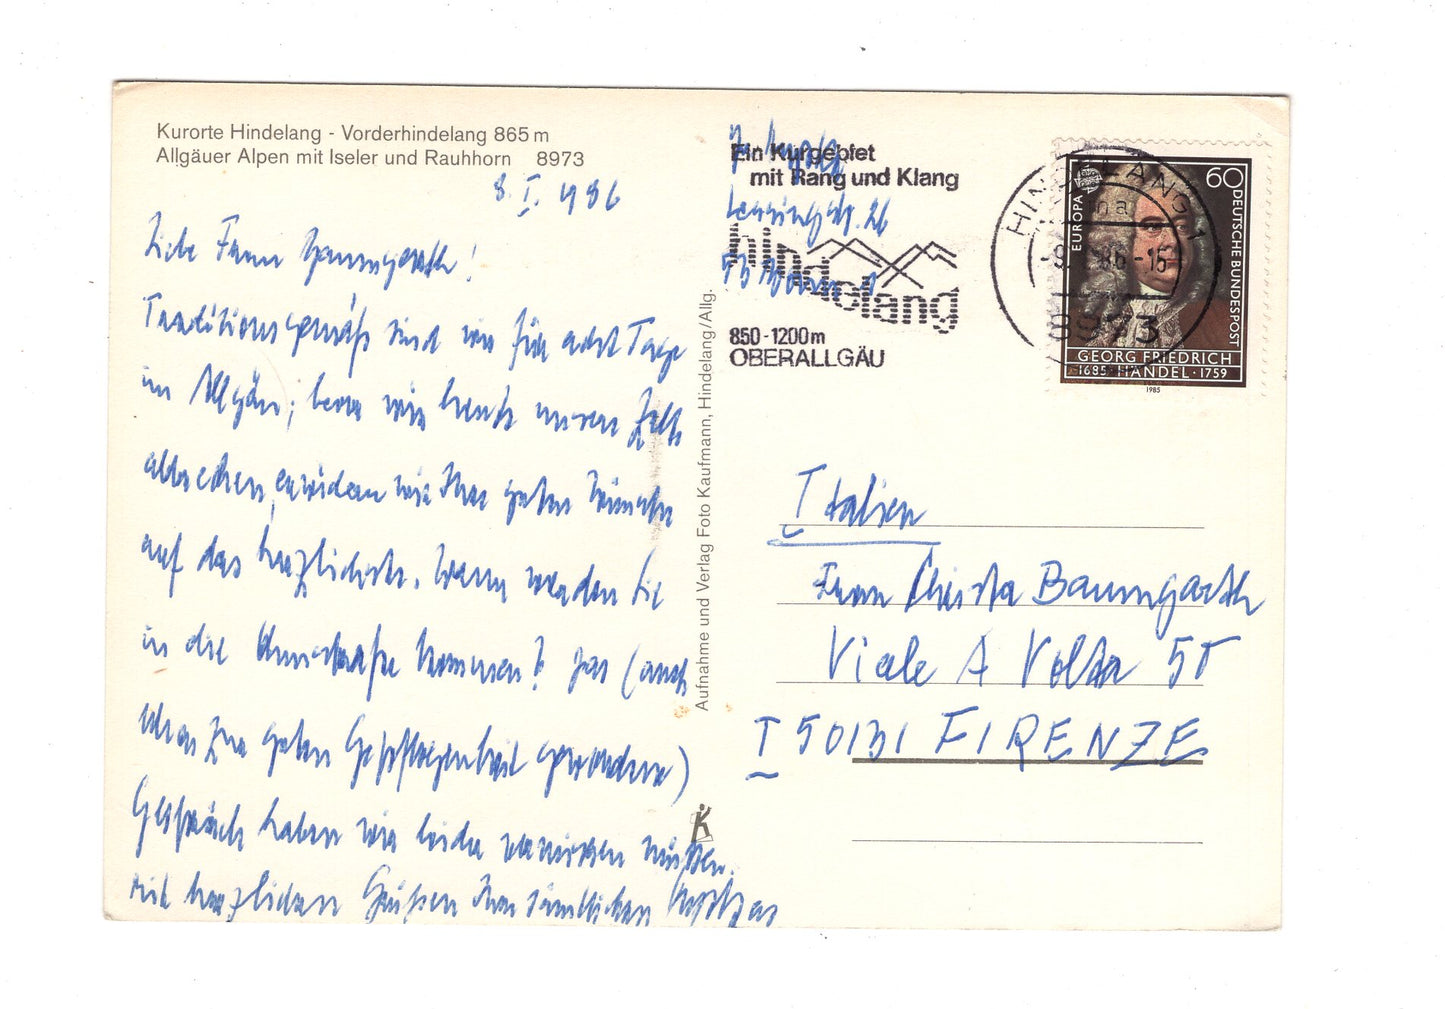 Kurorte Hindelang - Vorderhindelang 865 m
Allgäuer Alpen mit Iseler und Rauhhorn 8973
8. I. 1986
Liebe Frau Baumgarth!
Traditionsgemäß sind wir für acht Tage
im Allgäu; bevor wir heute unsere Zelte
abbrechen, erwidern wir Ihre guten Wünsche
auf das herzlichste. Wann werden Sie
in die kommen? Das (auch
schon zur guten Gepflogenheit gewordene)
Gespräch haben wir leider vermissen müssen.
Mit herzlichen Grüßen Ihre sämtlichen
Aufnahme und Verlag Foto Kaufmann, Hindelang/Allg.
Ein Kurgebiet
mit Rang und Klang
Lessingstr. 26
hindelang
850-1200m
OBERALLGÄU
HINDELANG 1
8973
60
EUROPA
DEUTSCHE BUNDESPOST
GEORG FRIEDRICH
1685 · HÄNDEL · 1759
1985
Italien
Frau Christa Baumgarth
Viale A Volta 55
I 50131 FIRENZE